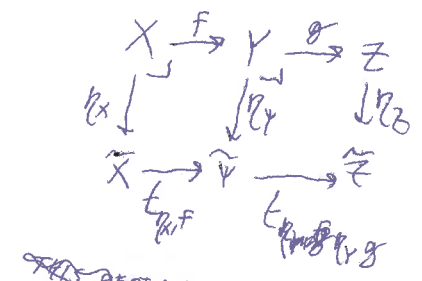 X f Y g Z
η_X η_Y η_Z
X̃ Ỹ Z̃
t_{η_X, f} t_{η_Y g}